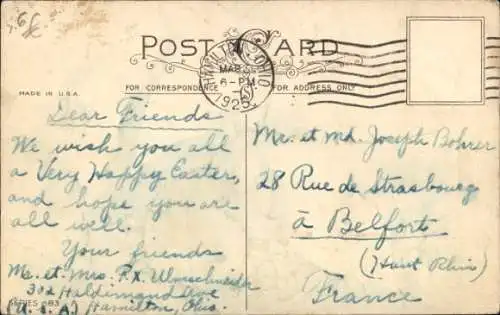 POST CARD
HAMILTON, OHIO.
MAR
6 - PM
1925
FOR CORRESPONDENCE
FOR ADDRESS ONLY
MADE IN U.S.A.
Dear Friends
We wish you all
a Very Happy Easter,
and hope you are
all well.
Your friends
Mr. et. Mrs. P.X. Ulmschneider
302 Haldimand Ave
(U.S.A.) Hamilton, Ohio.
SERIES 683
Mr. et Md. Joseph Bohrer
28 Rue de Strasbourg
à Belfort
(Haut Rhin)
France